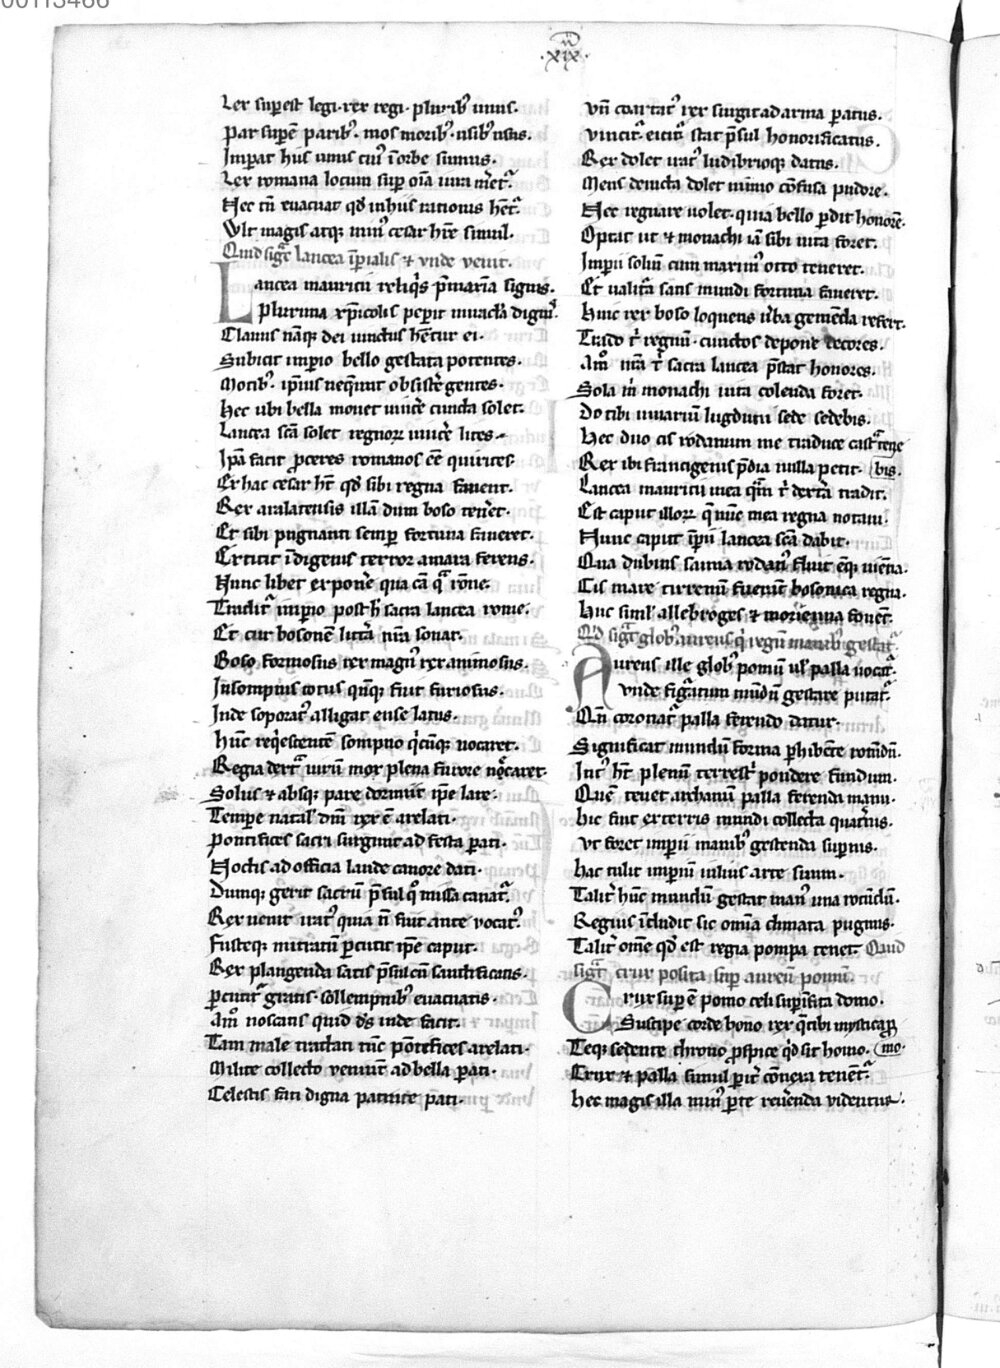 00113466
·xix·
Lex sup̄est legi· rex regi· plurib᷒ unus·
Par sup̄ē parib᷒· mos morib᷒· usib᷒ usus·
Imp̄at his unus cui᷒ ī orbe sumus·
Lex romana locum sup̄ oīa iura
Nec tn̄ euacuat qd̄ in his rationis
Vlt magis atq; min᷒ cesar hr̄e simul·
Quid sigt̄ lancea īp̄ialis ⁊ vnde venit·
Lancea mauricii reliq᷒s p̄maria signis·
Plurima xp̄icolis pep̄it miracl̄a
Clauus nāq; dei iunctus hētur ei·
Subicit imp̄io bello gestata potentes·
Motib᷒ ip̄ius neq̄unt obsistē gentes·
Hec ubi bella mouet uincē cuncta solet·
Lancea scā solet regnoꝝ uincē lites·
Ip̄a facit p̄ceres romanos eē quirites·
Et hac cesar ht̄ qd̄ sibi regna fauent·
Rex aralatensis illā dum boso tenēt·
Et sibi pugnanti semp̄ fortuna faueret·
Extitit īdigenis terror amara ferens·
Nunc libet exponē qua cā q̄
Traditᷣ imp̄io post h̄ sacra lancea rome·
Et cur bosonē litt̄a nr̄a sonat·
Boso formosus rex magn᷒ rex animosus·
Insompnis totus qn̄q; fuit furiosus·
Inde soporat᷒ alligat ense latus·
Hūc req̄escentē sompno q̄cūq; uocaret·
Regia dext̄a uirū mox plena furore nēcaret·
Solus ⁊ absq; pare dormiit ip̄e lare·
Tempe natal᷒ dn̄i rex ē arelati·
Pontifices sacri surgunt ad festa p̄ati·
Noctis ad officia laude canore dati·
Dumq; gerit sacrū p̄sul q᷒ missa canat᷒·
Rex uenit irat᷒ quia n̄ fuit ante vocat᷒·
Fusteq; mitratū p̄cutit ip̄e caput·
Rex plangenda satis p̄sul cū sanctificatis·
p̄cutitᷣ gratis· sollempnib᷒ euacuatis·
Am̄ noscatis quid ds̄ inde facit·
Tam male tractati tūc pōtifices arelati·
Milite collecto veniūt ad bella p̄ati·
Celestis fati digna patrare pati·
Vn̄ coartat᷒ rex surgit ad arma p̄atus·
Vincitᷣ eicitᷣ stat p̄sul honorificatus·
Rex dolet irat᷒ ludibrioq; datus·
Mens deuicta dolet nimio cōfusa pudore·
Nec regnare uolet· quia bello p̄dit honorē·
Optat ut ⁊ monachi iā sibi uita foret·
Imp̄ii solium cum maxim᷒ otto teneret·
Et ualit̄a satis mundi fortuna faueret·
Huic rex boso loquens ūba gemēda refert·
Trado t᷒ regnū· cunctos depone decores·
Am̄ nr̄a t᷒ sacra lancea p̄stat honores·
Sola m᷒ monachi uita colenda foret·
Do tibi uiuariū lugduni sede sedebis·
Hec duo cis rodanum me traduce
Rex ibi francigenis p̄dia nulla petit· bis·
Lancea mauricii mea t᷒ dext̄a tradit·
Est caput illoꝝ q̄ nūc mea regna notaui·
Hunc caput īp̄ii lancea scā dabit·
Qua dubius sauna rodan᷒ fluit ēq; uiēna·
Cis mare tirrenū fuerūt bosonica regna·
Huc simᷝ allebroges ⁊ morienna fouēt·
Qd̄ sigt̄ glob᷒ aureus q̄ regū manib᷒ gestatᷣ·
Aureus ille glob᷒ pomū ul᷒ palla uocatᷣ·
Vnde figᷓatum mūdū gestare putatᷣ·
Qn̄ coronatᷣ palla ferendo datur·
Significat mundū forma p̄hibēte rotūdū·
Int᷒ ht̄ plenū terrestᷣ pondere fundum·
Quē tenet archanū palla ferenda manu·
Hic fuit ex terris mundi collecta quat̄nis·
Vt foret imp̄ii manib᷒ gestenda sup̄nis·
Hac tulit imp̄iū iulius arte suum·
Talit̄ hūc mundū gestat man᷒ una rotūdū·
Regius īcludit sic omīa climata pugnus·
Talit̄ om̄e qd̄ est regia pompa tenet· Quid
sigt̄ crux posita sup̄ aureū pomū·
Crux sup̄ ē pomo celi sup̄īsita domo·
Suscipe corde bono rex q̄ tibi mystica
Teq; sedente throno p̄spice qd̄ sit homo· mo·
Crux ⁊ palla simul p̄it̄ cōnexa tenētᷣ·
Hec magis illa min᷒ p̄te reūenda videntur·